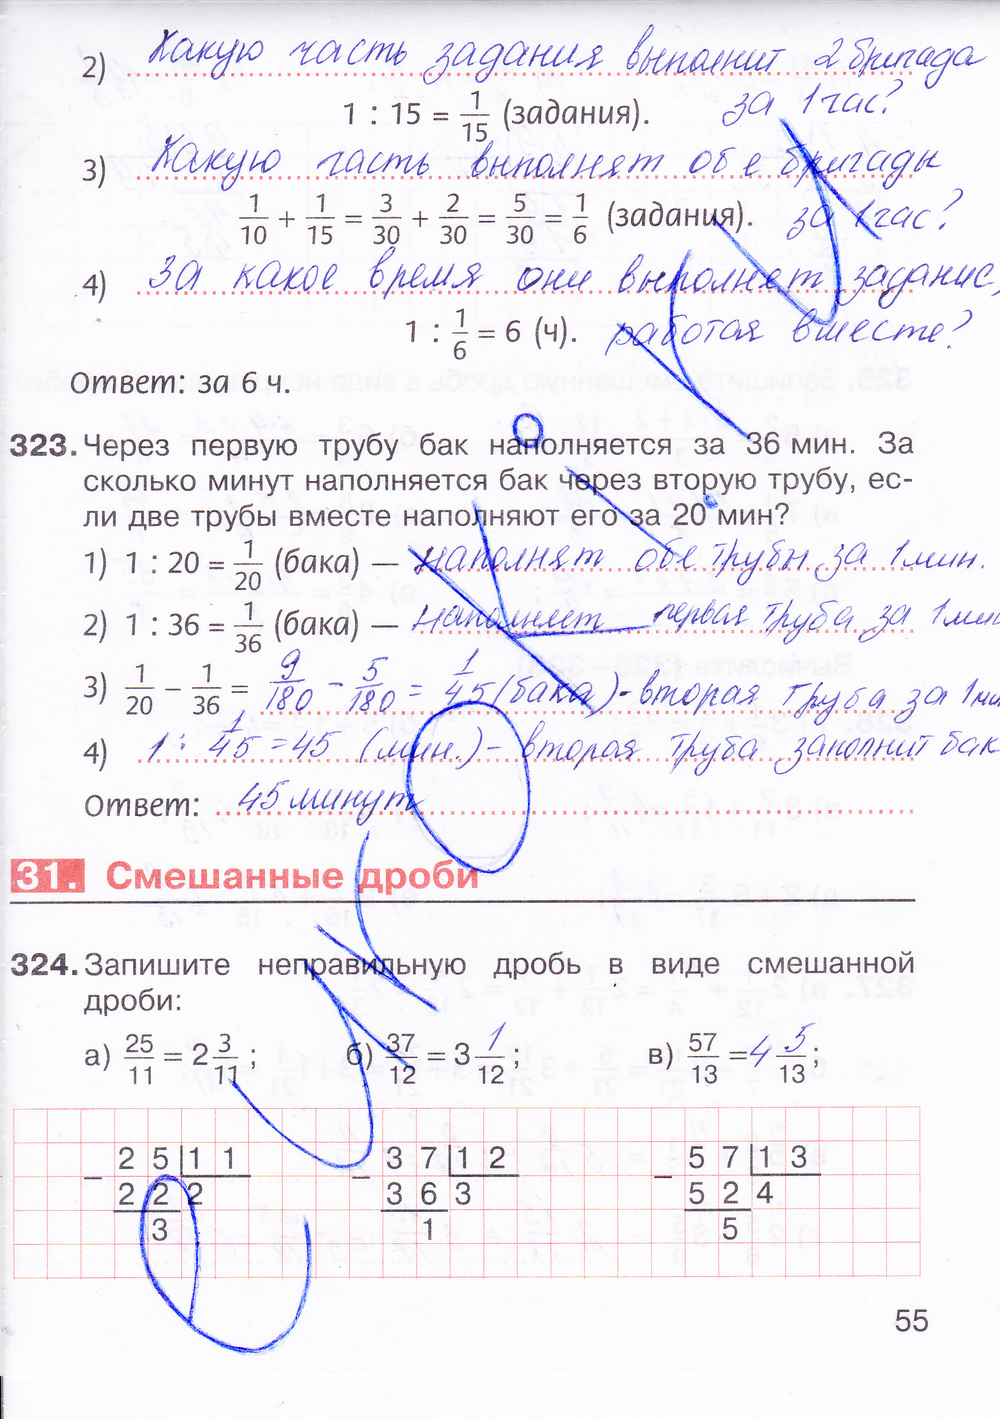 2) Какую часть задания выполнит 2 бригада
1 : 15 = 1/15 (задания). за 1 час?
3) Какую часть выполнят обе бригады
1/10 + 1/15 = 3/30 + 2/30 = 5/30 = 1/6 (задания). за 1 час?
4) За какое время они выполнят задание,
1 : 1/6 = 6 (ч). работая вместе?
Ответ: за 6 ч.
323. Через первую трубу бак наполняется за 36 мин. За
сколько минут наполняется бак через вторую трубу, ес-
ли две трубы вместе наполняют его за 20 мин?
1) 1 : 20 = 1/20 (бака) — наполнят обе трубы за 1 мин.
2) 1 : 36 = 1/36 (бака) — наполняет первая труба за 1 мин
3) 1/20 − 1/36 = 9/180 - 5/180 = 1/45 (бака) - вторая труба за 1 мин
4) 1 : 1/45 = 45 (мин.) - вторая труба заполнит бак
Ответ: 45 минут
31. Смешанные дроби
324. Запишите неправильную дробь в виде смешанной
дроби:
а) 25/11 = 2 3/11 ; б) 37/12 = 3 1/12 ; в) 57/13 = 4 5/13 ;
− 2 5 | 1 1 − 3 7 | 1 2 − 5 7 | 1 3
2 2 2 3 6 3 5 2 4
3 1 5
55